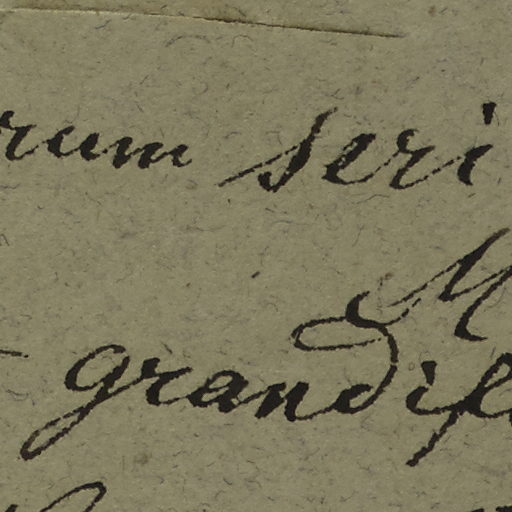 rum seri
M
grandifl